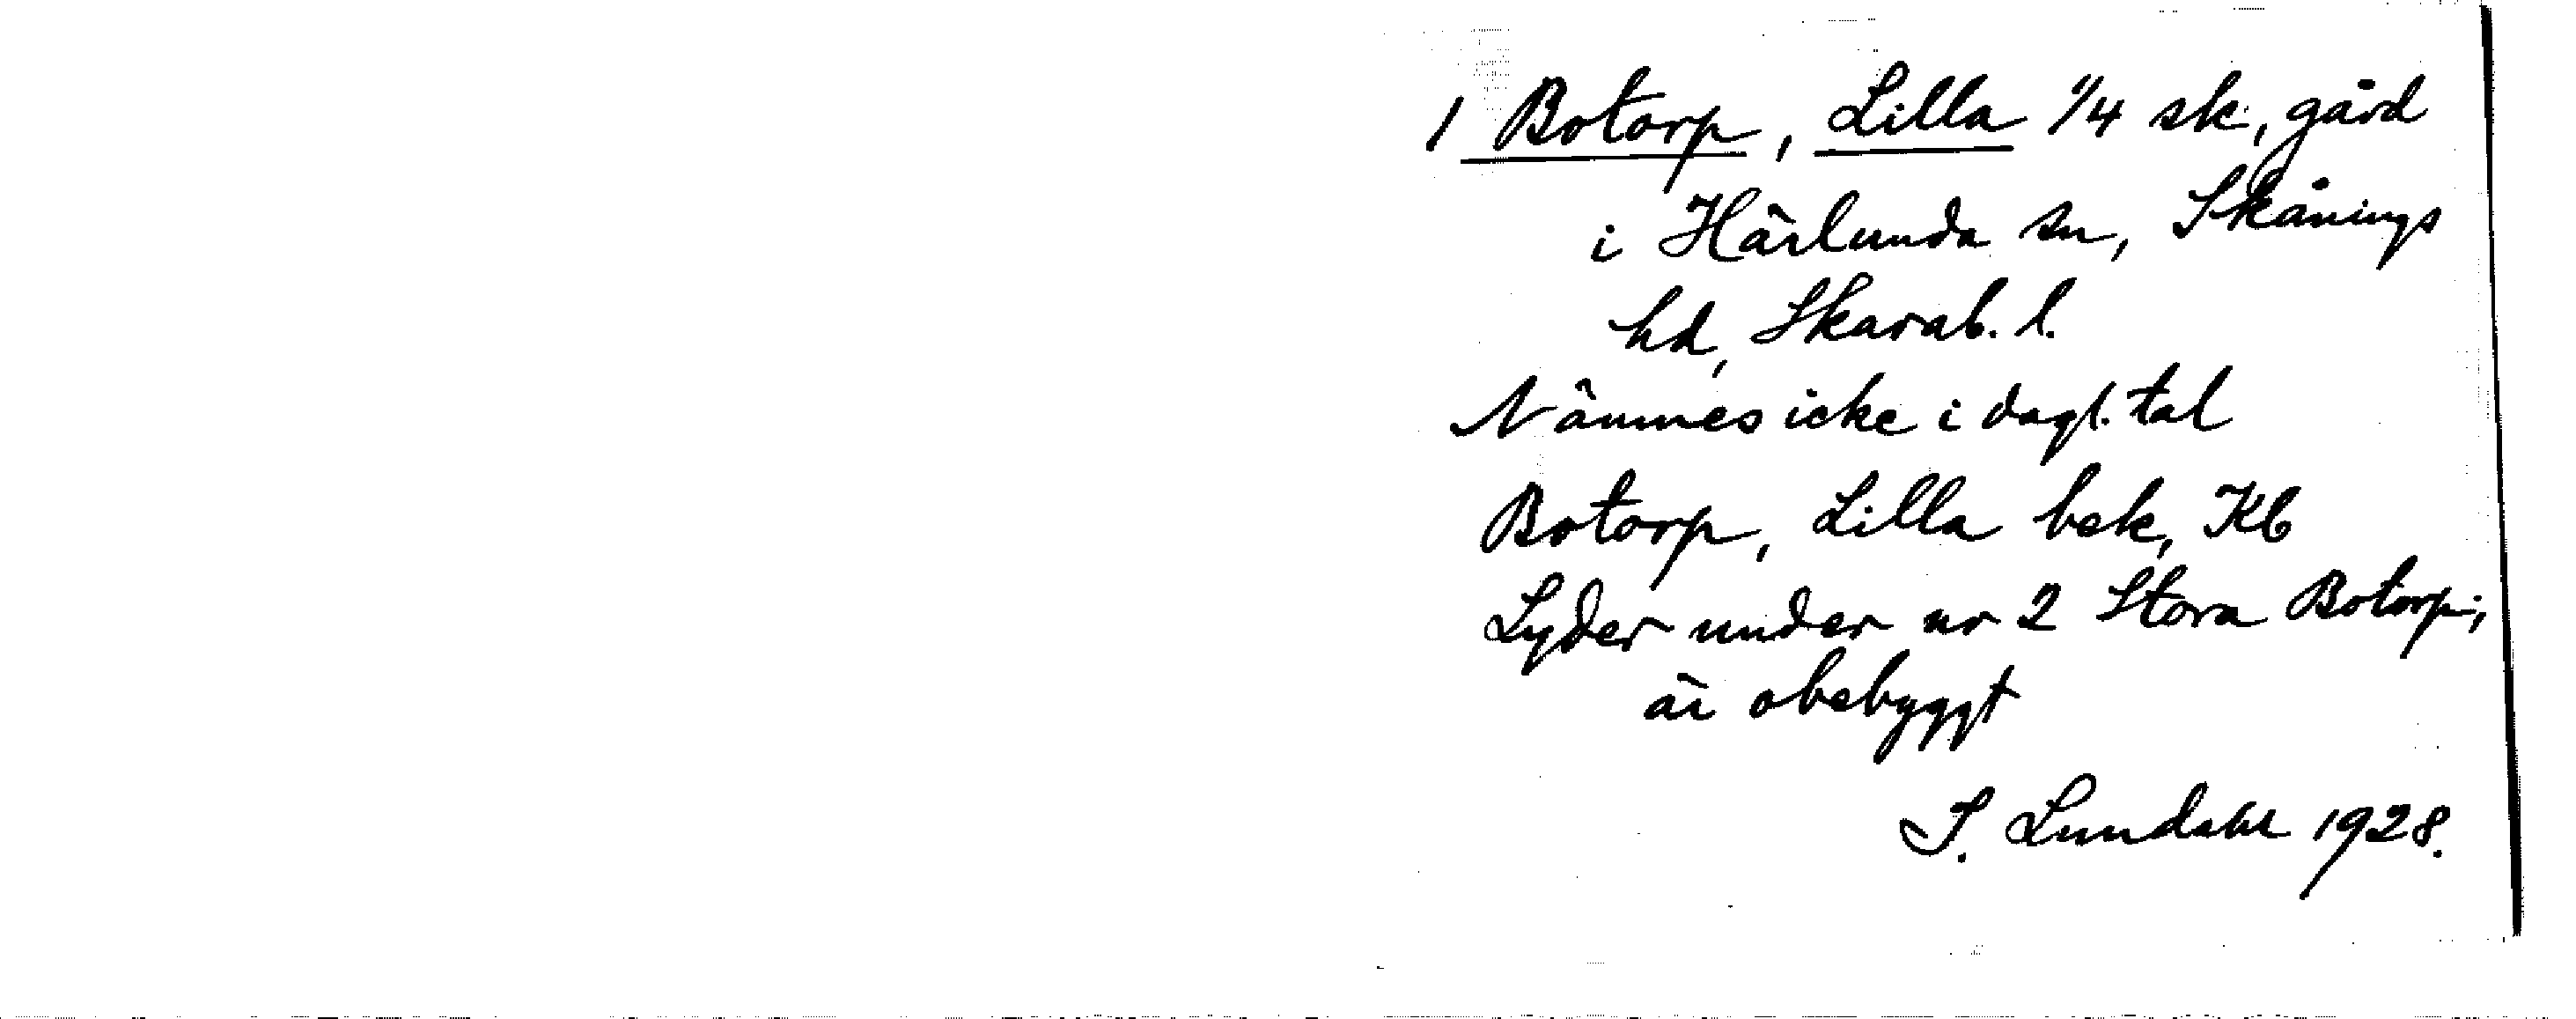 1 Botorp, Lilla 1/4 sk., gård
i Härlunda sn, Skånings
hd, Skarab. l.
Nämnes icke i dagl. tal
Botorp, Lilla bek, Kb
Lyder under nr 2 Stora Botorp;
är obebyggt
I. Lundahl 1928.